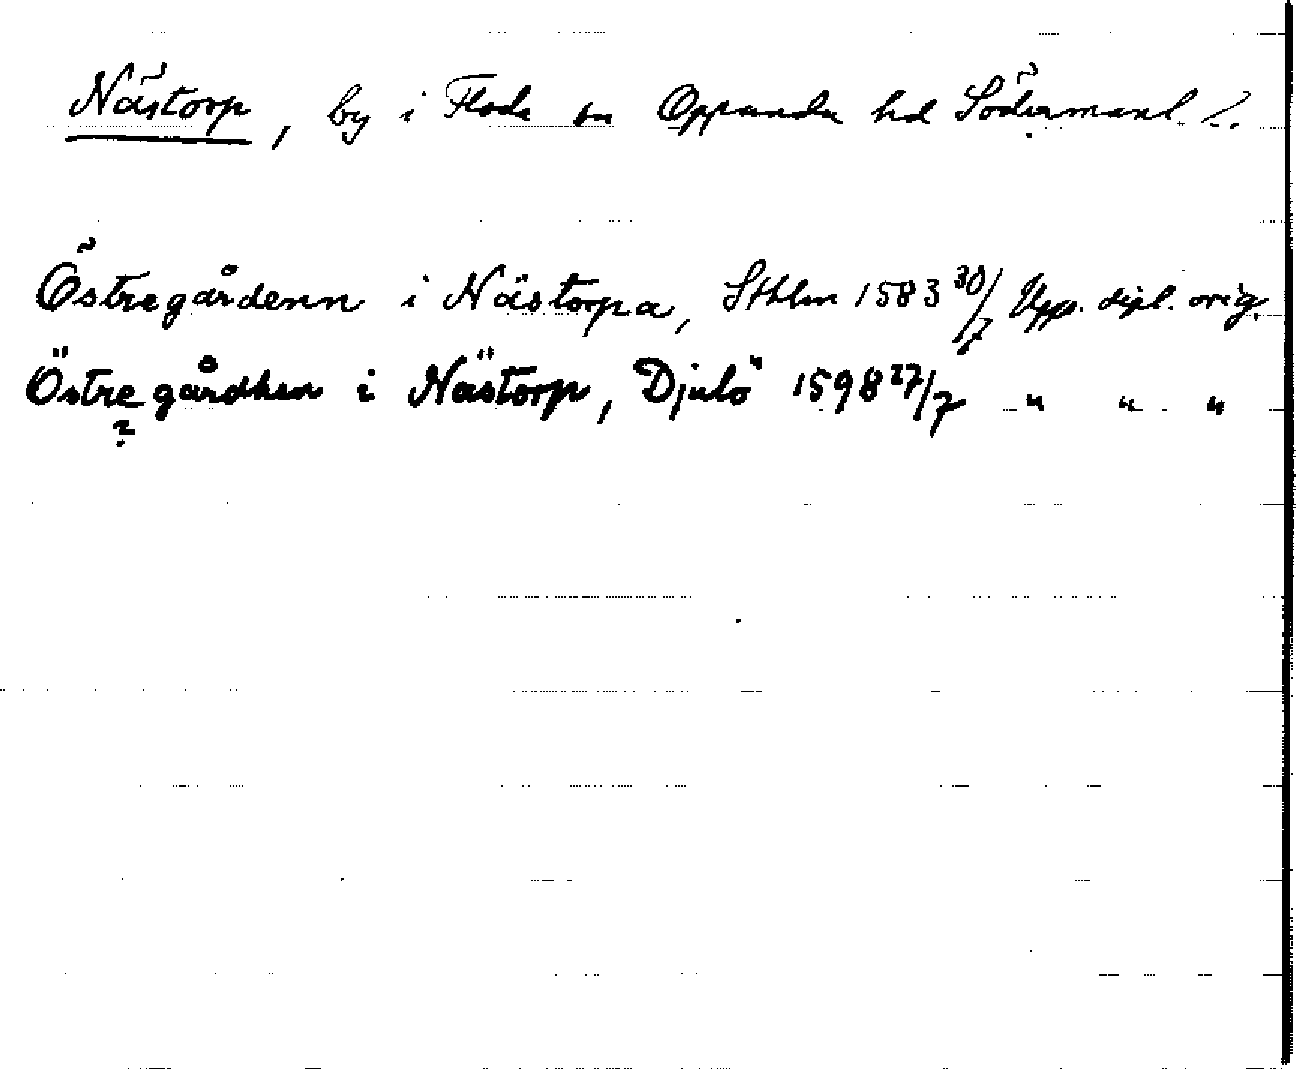 Nästorp, by i Floda sn Oppunda hd Södermanl. L.
Östregårdenn i Nästorpa, Sthlm 1583 30/7 Upps. dipl. orig.
Östre gårdhen i Nästorp, Djulö 1598 27/7 " " "
?